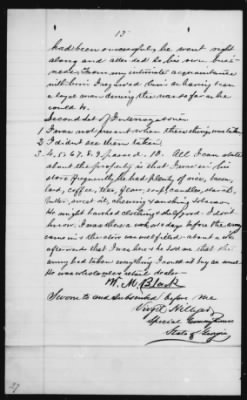 12
had been successful, he went right
along and attended to his own busi-
ness. From my intimate acquaintance
with him I regarded him as having been
a loyal man during the war so far as he
could be.
Second Set of Interrogatories
1 I was not present when these things was taken
2 I didnt see them taken
3. 4. 5. 6 7. 8. 9 passed. 10. All I can state
about the property is that I was in his
store frequently he had plenty of rice, bacon,
lard, coffee, tea, flour, soap, candles, starch,
butter, sweet oil, chewing & smoking tobacco.
He might have had clothing & dry good. I dont
know. I was there several days before the army
came in & the store was well filled - about a week
afterwards I was here & he told me that the
army had taken everything I would it by an
He was wholesale & retail dealer -
W. M. Black
Sworn to and Subscribed before me
Virgil Hillyer
Special Commissioner
State of Georgia
27